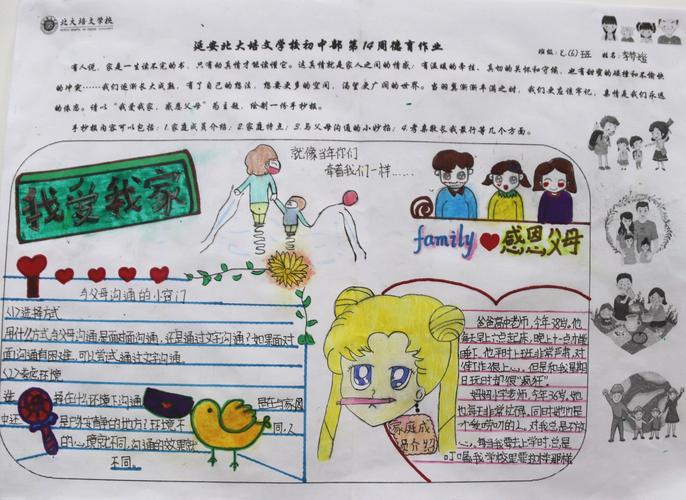 北大培文学校
延安北大培文学校初中部第14周德育作业
班级:七(6)班 姓名:
有人说,家是一生读不完的书,只有动真情才能读懂它。这真情就是家人之间的情感:有温暖的牵挂,真切的关怀和守候,也有甜蜜的碰撞和不愉快
的冲突……我们逐渐长大成熟,有了自己的想法,想要更多的空间,渴望更广阔的世界。当羽翼渐渐丰满之时,我们更应该牢记,亲情是我们永远
的依恋。请以“我爱我家,感恩父母”为主题,绘制一份手抄报。
手抄报内容可以包括:1.家庭成员介绍;2.家庭特点;3.与父母沟通的小妙招;4.孝亲敬长我最行等几个方面。
我爱我家
就像当年你们
牵着我们一样……
family 感恩父母
与父母沟通的小窍门
(1)选择方式
用什么方式与父母沟通,是面对面沟通,还是通过文字沟通?如果面对
面沟通有困难,可以尝试通过文字沟通。
(2)考虑环境
选择在什么环境下沟通 是在与家里
还是户外安静的地方?环境不同,人
的心境就不同,沟通的效果就
不同。
家庭成
员介绍
爸爸高中老师,今年38岁。他
每天早上六点起床,晚上十一点才能
睡。他平时上班非常严肃,对
工作很上心,但是和我星期
日玩时却很“疯狂”。
妈妈小学老师,今年36岁。她
也每天非常忙碌,同时她也是
个爱唠叨的人,对我总是不放
心,每当我要上学时,总是
叮嘱我学校里要这样那样